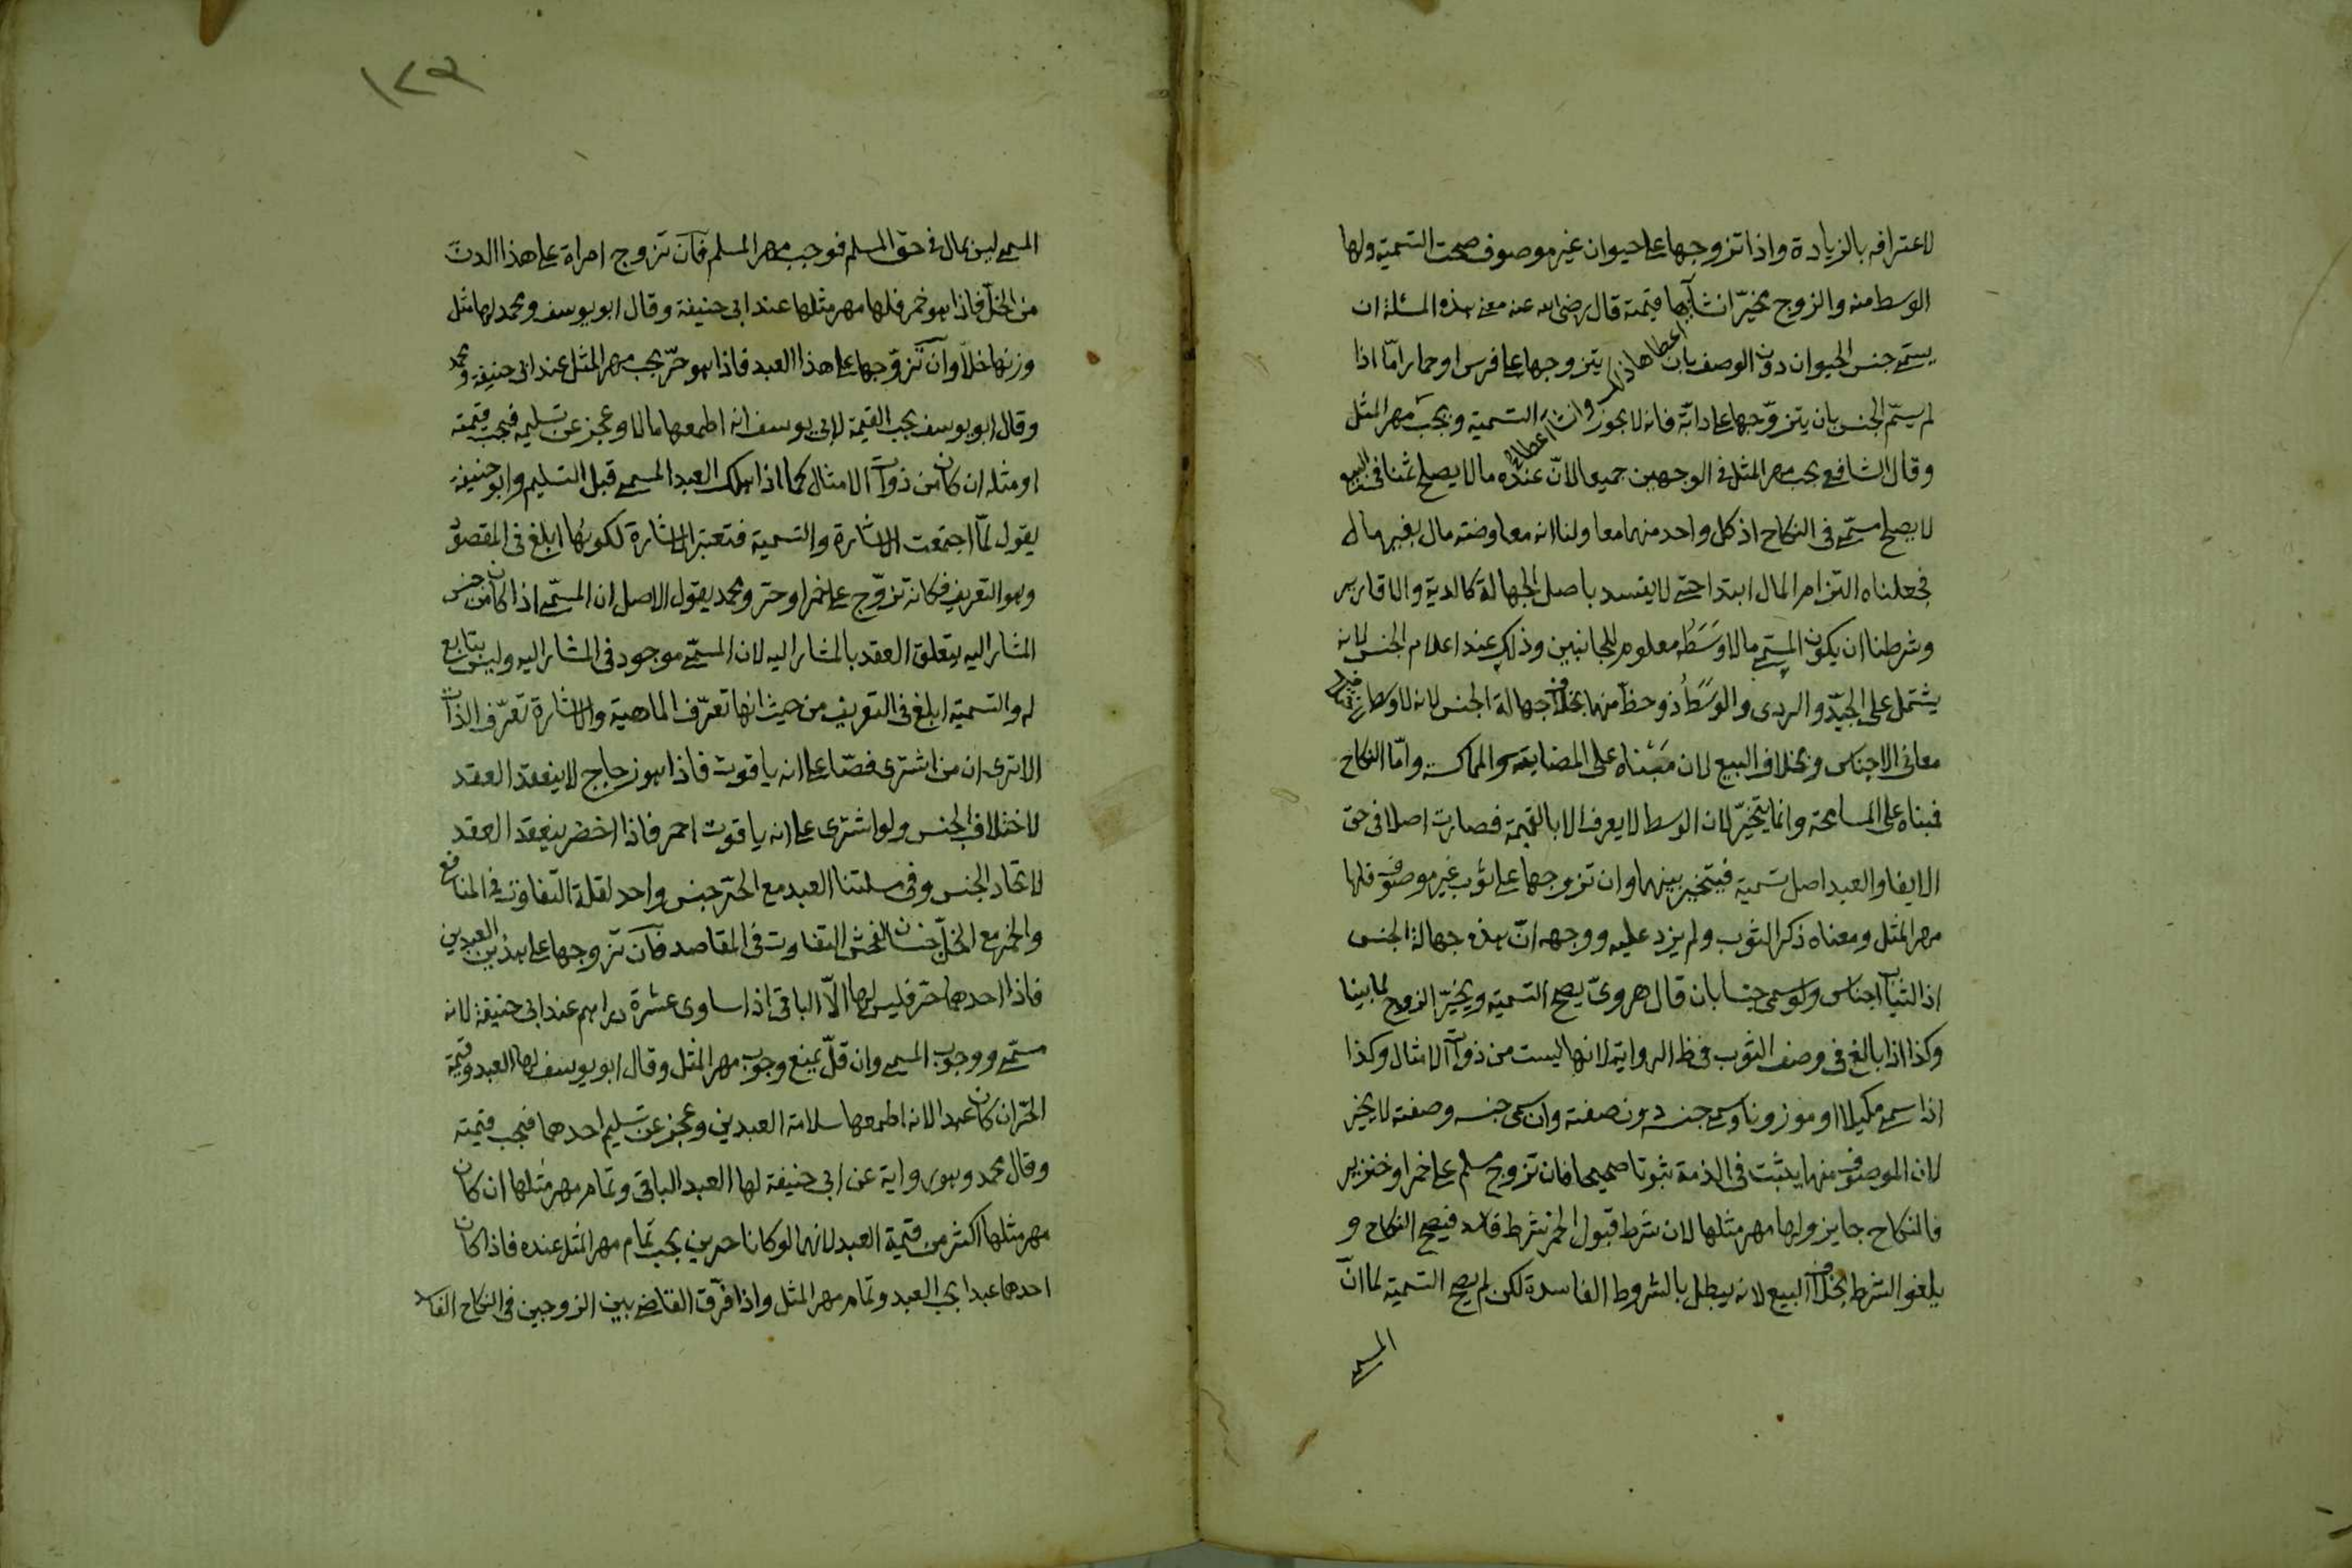 لاعترافه بالزيادة واذا تزوجها على حيوان غير موصوف صحت التسمية ولها
الوسط منه والزوج مخيّر ان شآ اعطاها ذلك وان شآ اعطاها قيمته قال رضى الله عنه معنى هذه المسئلة ان
يسمّى جنس الحيوان دون الوصف بان يتزوجها على فرس او حمار امّا اذا
لم يسمّ الجنس بان يتزوّجها على دابّة فانه لا يجوز التسمية ويجب مهر المثل
وقال الشافعى يجب مهر المثل فى الوجهين جميعا لانّ عنده ما لا يصلح ثمنا فى البيع
لا يصلح مسمّى فى النكاح اذ كل واحد منهما معاوضة ولنا انه معاوضة مال بغير مال
فجعلناه التزام المال ابتدا حتى لا يفسد باصل الجهالة كالدية والاقارير
وشرطنا ان يكون المسمى مالا وسَطُه معلوم للجانبين وذلك عند اعلام الجنس لانه
يشتمل على الجيّد والردى والوسَطُ ذو حظّ منهما بخلاف جهالة الجنس لانه لا وسط له لاختلاف
معانى الاجناس وبخلاف البيع لان مَبْناه على المضايقة والمماكسة وامّا النكاح
فمبناه على المسامحة وانما يتخيّر لان الوسط لا يعرف الا بالقيمة فصارت اصلا فى حق
الايفا والعبد اصل تسمية فيتخير بينهما وان تزوجها على ثوب غير موصوف فلها
مهر المثل ومعناه ذكر الثوب ولم يزد عليه ووجهه انّ هذه جهالة الجنس
اذ الثياب اجناس ولو سمى جنسا بان قال هروىّ يصح التسمية ويخيّر الزوج لما بينا
وكذا اذا بالغ فى وصف الثوب فى ظاهر الرواية لانها ليست من ذوات الامثال وكذا
اذا سمى مكيلا او موزونا وسمى جنسه دون صفته وان سمى جنسه وصفته لا يخير
لان الموصوف منهما يثبت فى الذمة ثبوتا صحيحا فان تزوج مسلم على خمر او خنزير
فالنكاح جايز ولها مهر مثلها لان شرط قبول الخمر شرط فاسد فيصح النكاح و
يلغو الشرط بخلاف البيع لانه يبطل بالشروط الفاسدة لكن لم يصح التسمية لما انّ
المسمى
١٢٣
المسمى ليس بمال فى حق المسلم فوجب مهر المسلم فآن تزوج امراة على هذا الدنّ
من الخلّ فاذا هو خمر فلها مهر مثلها عند ابى حنيفة وقال ابو يوسف ومحمد لها مثل
وزنها خلّا وآن تزوّجها على هذا العبد فاذا هو حرّ يجب مهر المثل عند ابى حنيفة ومحمد
وقال ابو يوسف يجب القيمة لابى يوسف انه اطمعها مالا وعجز عن تسليمه فيجب قيمته
او مثله ان كان من ذوات الامثال كما اذا هلك العبد المسمى قبل التسليم وابو حنيفة
يقول لمّا اجتمعت الاشارة والتسمية فتعتبر الاشارة لكونها ابلغ فى المقصود
وهو التعريف فكانه تزوّج على خمر او حر ومحمد يقول الاصل ان المسمّى اذا كان من جنس
المشار اليه يتعلق العقد بالمشار اليه لان المسمّى موجود فى المشار اليه وليس بتابع
له والتسمية ابلغ فى التعريف من حيث انها تعرّف الماهية والاشارة تعرّف الذات
الا ترى ان من اشترى فصّا على انه ياقوت فاذا هو زجاج لا ينعقد العقد
لاختلاف الجنس ولو اشترى على انه ياقوت احمر فاذا اخضر ينعقد العقد
لاتحاد الجنس وفى مسئلتنا العبد مع الحرّ جنس واحد لقلة التفاوت فى المنافع
والخمر مع الخلّ جنسان لفحش التفاوت فى المقاصد فآن تزوجها على هذين العبدين
فاذا احدهما حرّ فليس لها الّا الباقى اذا ساوى عشرة دراهم عند ابى حنيفة لانه
مسمّى ووجوب المسمى وان قلّ يمنع وجوب مهر المثل وقال ابو يوسف لها العبد وقيمة
الحرّ ان كان عبدا لانه اطمعها سلامة العبدين وعجز عن تسليم احدهما فيجب قيمته
وقال محمد وهو رواية عن ابى حنيفة لها العبد الباقى وتمام مهر مثلها ان كان
مهر مثلها اكثر من قيمة العبد لانهما لو كانا حرين يجب تمام مهر المثل عنده فاذا كان
احدهما عبدا يجب العبد وتمام مهر المثل واذا فرّق القاضى بين الزوجين فى النكاح الفاسد